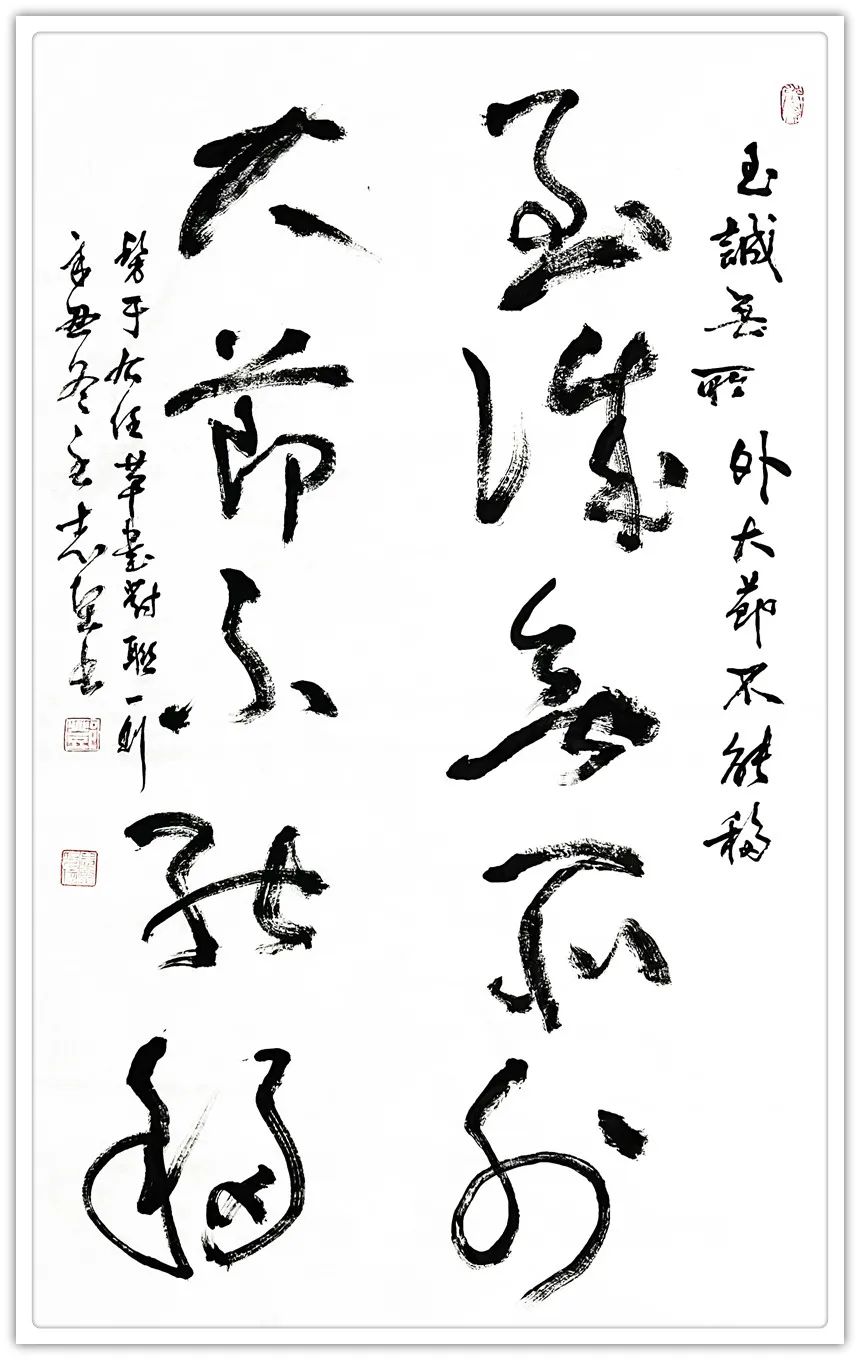 至誠無所外大節不能移
至誠無所外
大節不能移
于右任草書對聯一
辛丑冬志書